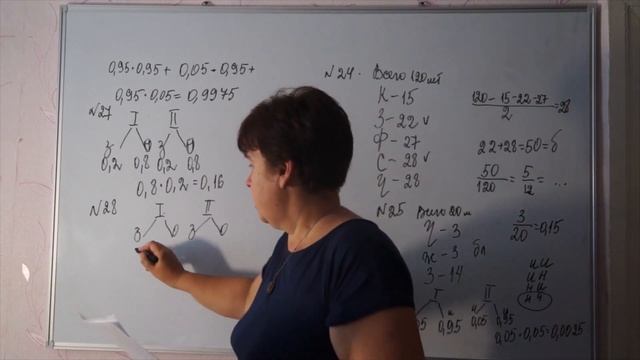 0,95·0,95+ 0,05·0,95+
0,95·0,05=0,9975
N27
I II
З З
0,2 0,8 0,2 0,8
0,8·0,2=0,16
N28
I II
З З
N24. Всего 120 шт
К-15
З-22 v
Ф-27
С-28 v
Ч-28
120-15-22-27
2
=28
22+28=50=б
50
120
=
5
12
= ...
N25 Всего 20 м
Ч-3
Ж-3 бл
З-14
3
20
=0,15
и и
и н
н и
н н
I II
и и ч
0,95 0,05 0,95
0,05·0,05=0,0025